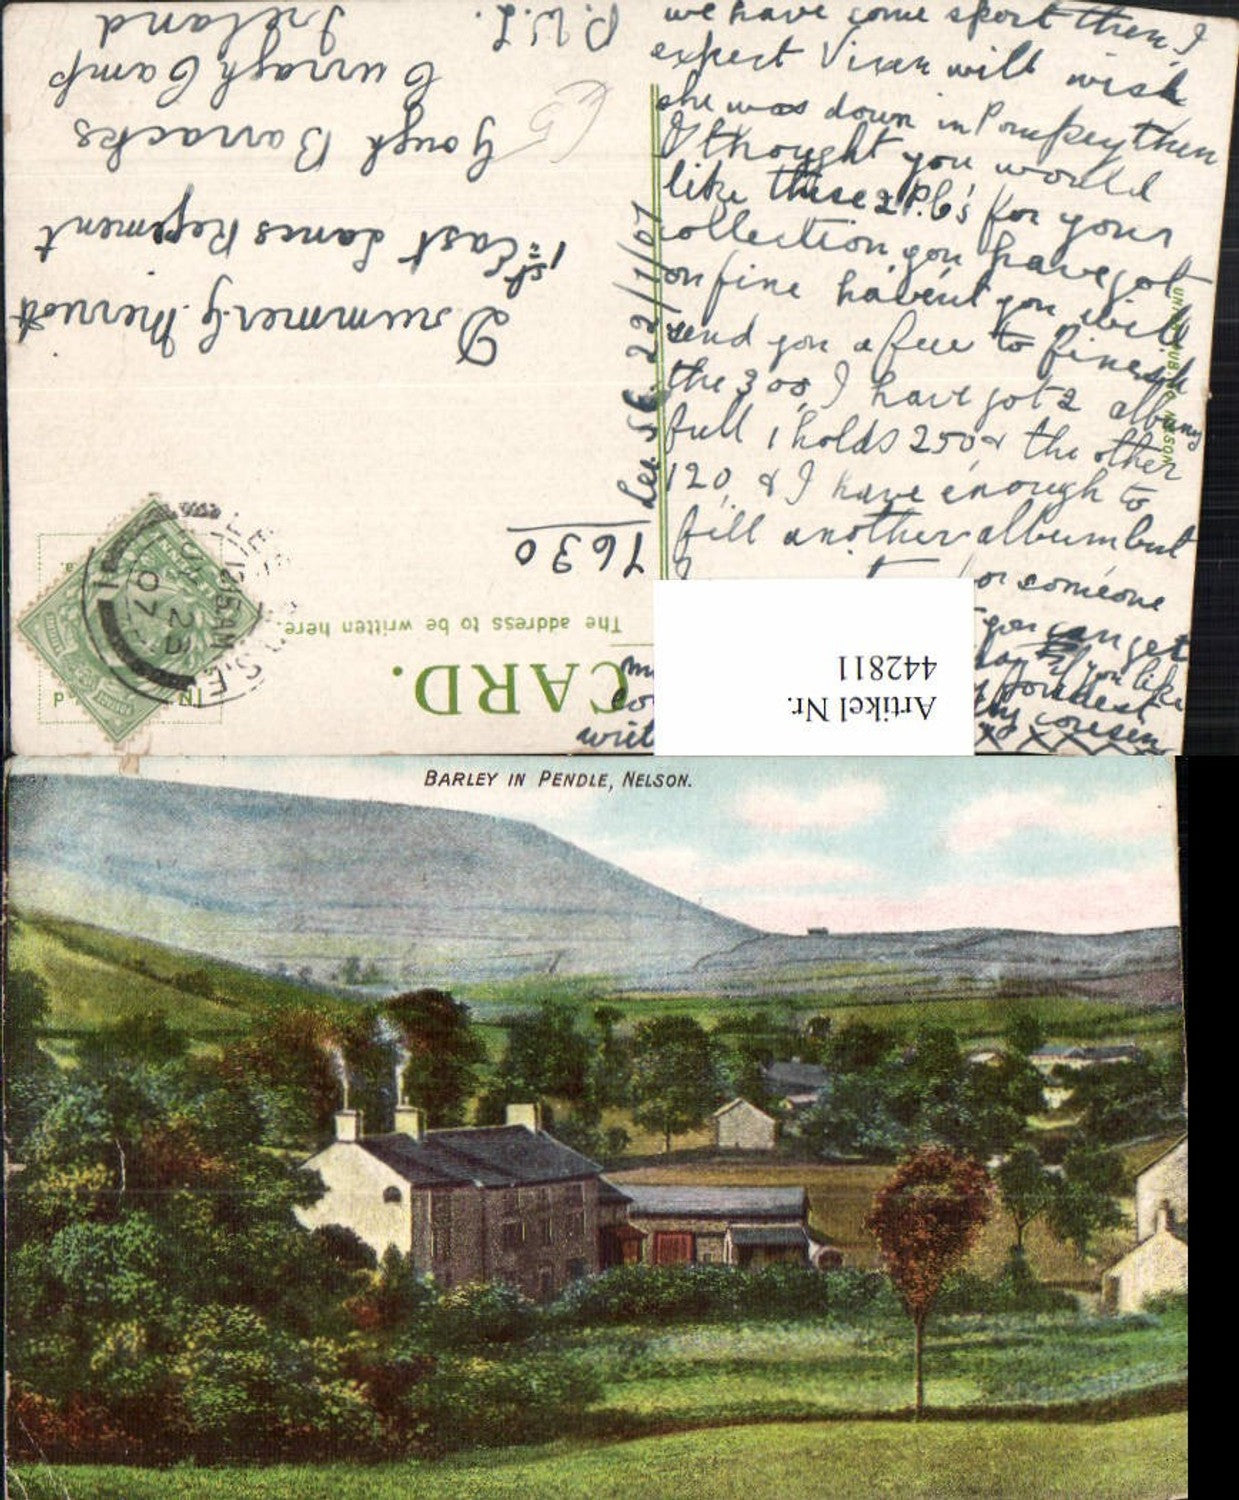 we have some sport then, I
expect Vixen will wish
she was down in Pompey then
I thought you would
like these 2 P.C's for your
collection, you have got
on fine haven't you, will
send you a few to finish
the 300, I have got 2 albums
full 1 holds 250 & the other
120, & I have enough to
fill another album but
for someone
you can get
if you like
fondest
cousin
x x x x x
Rec. 22/1/07
CARD.
The address to be written here.
7630
Drummer J. Merriott
1st East Lancs Regiment
Gough Barracks
Curragh Camp
Ireland
P.W.L.
65
12 15 AM
JA 23
07
BARLEY IN PENDLE, NELSON.
Artikel Nr.
442811